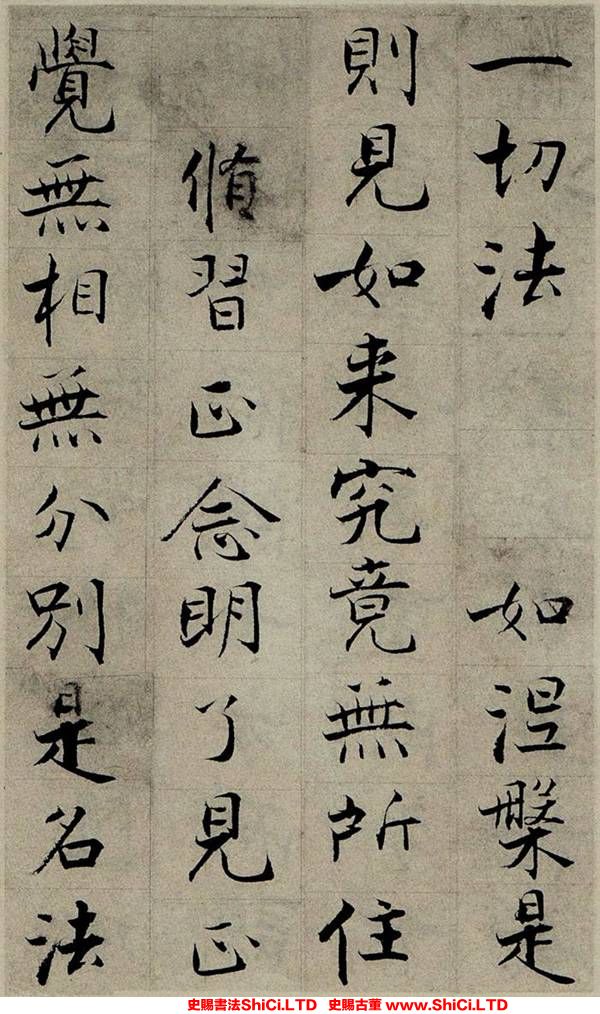 一切法 如涅槃是
則見如来究竟無所住
脩習正念明了見正
覺無相無分別是名法
史賜書法ShiCi.LTD 史賜古董 www.ShiCi.LTD